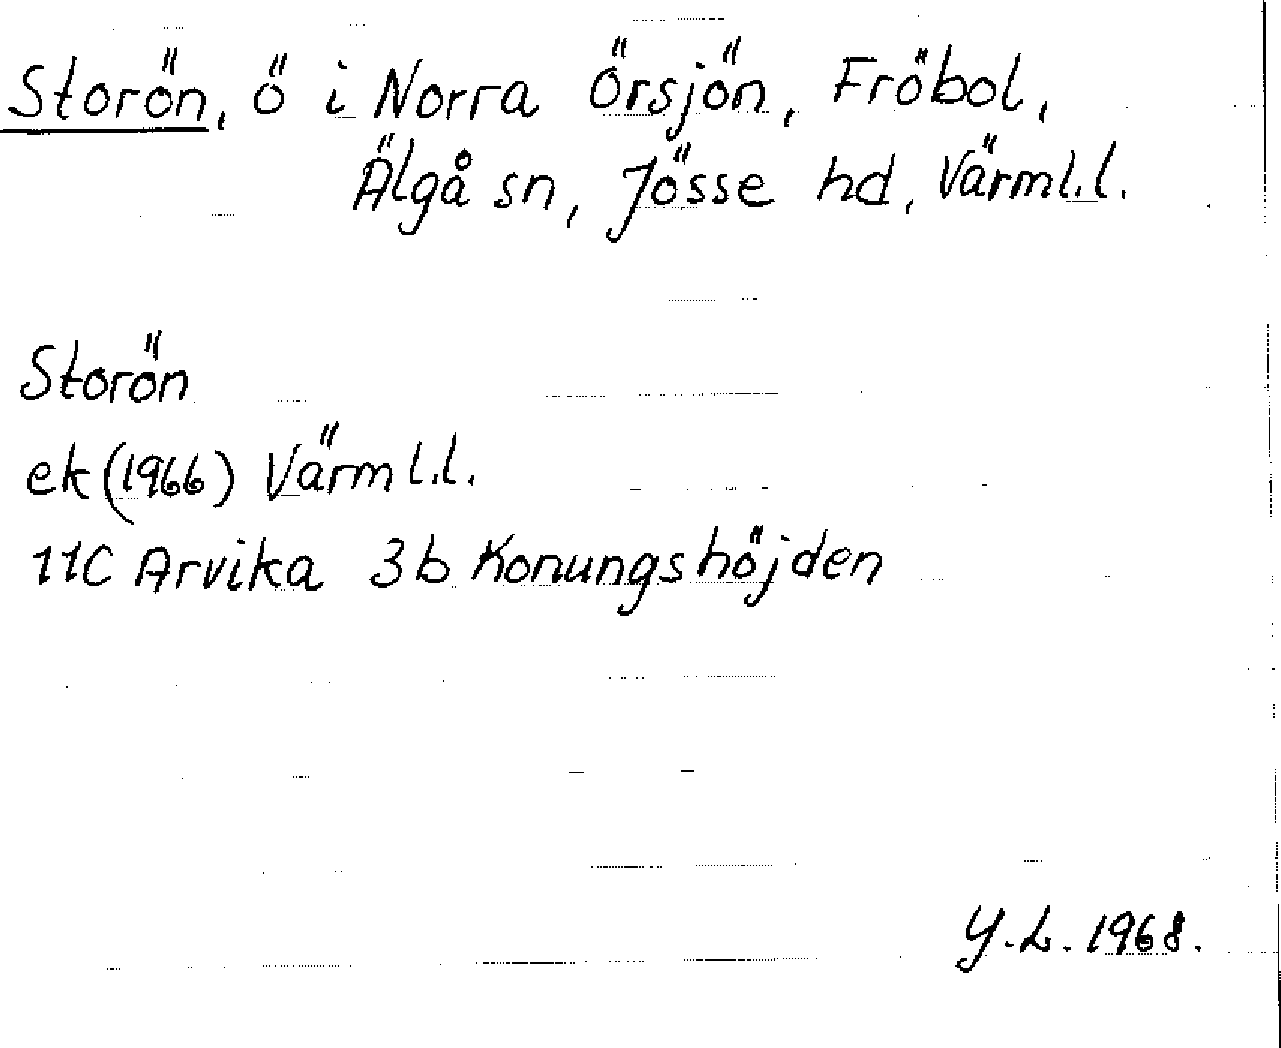 Storön, ö i Norra Örsjön, Fröbol,
Älgå sn, Jösse hd, Värml.l.
Storön
ek (1966) Värml.l.
11C Arvika 3b Konungshöjden
Y.L. 1968.